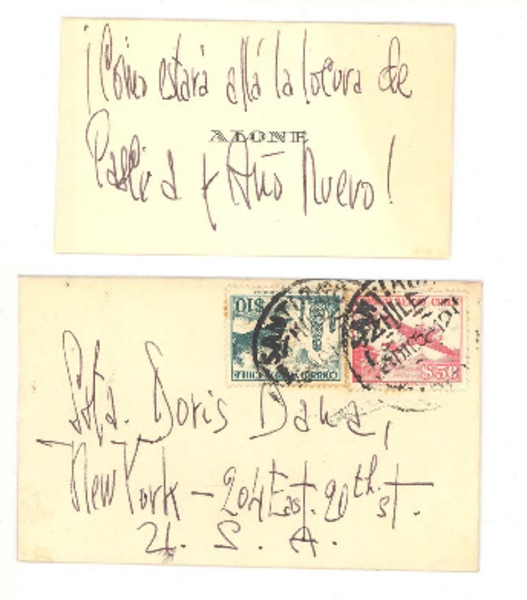 ¡Cómo estará allá la locura de
ALONE
Pascua y Año Nuevo!
$10
CORREO CHILE
SANTIAGO
CHILE
Srta. Doris Dana,
New York - 204 East. 20th. st.
U. S. A.